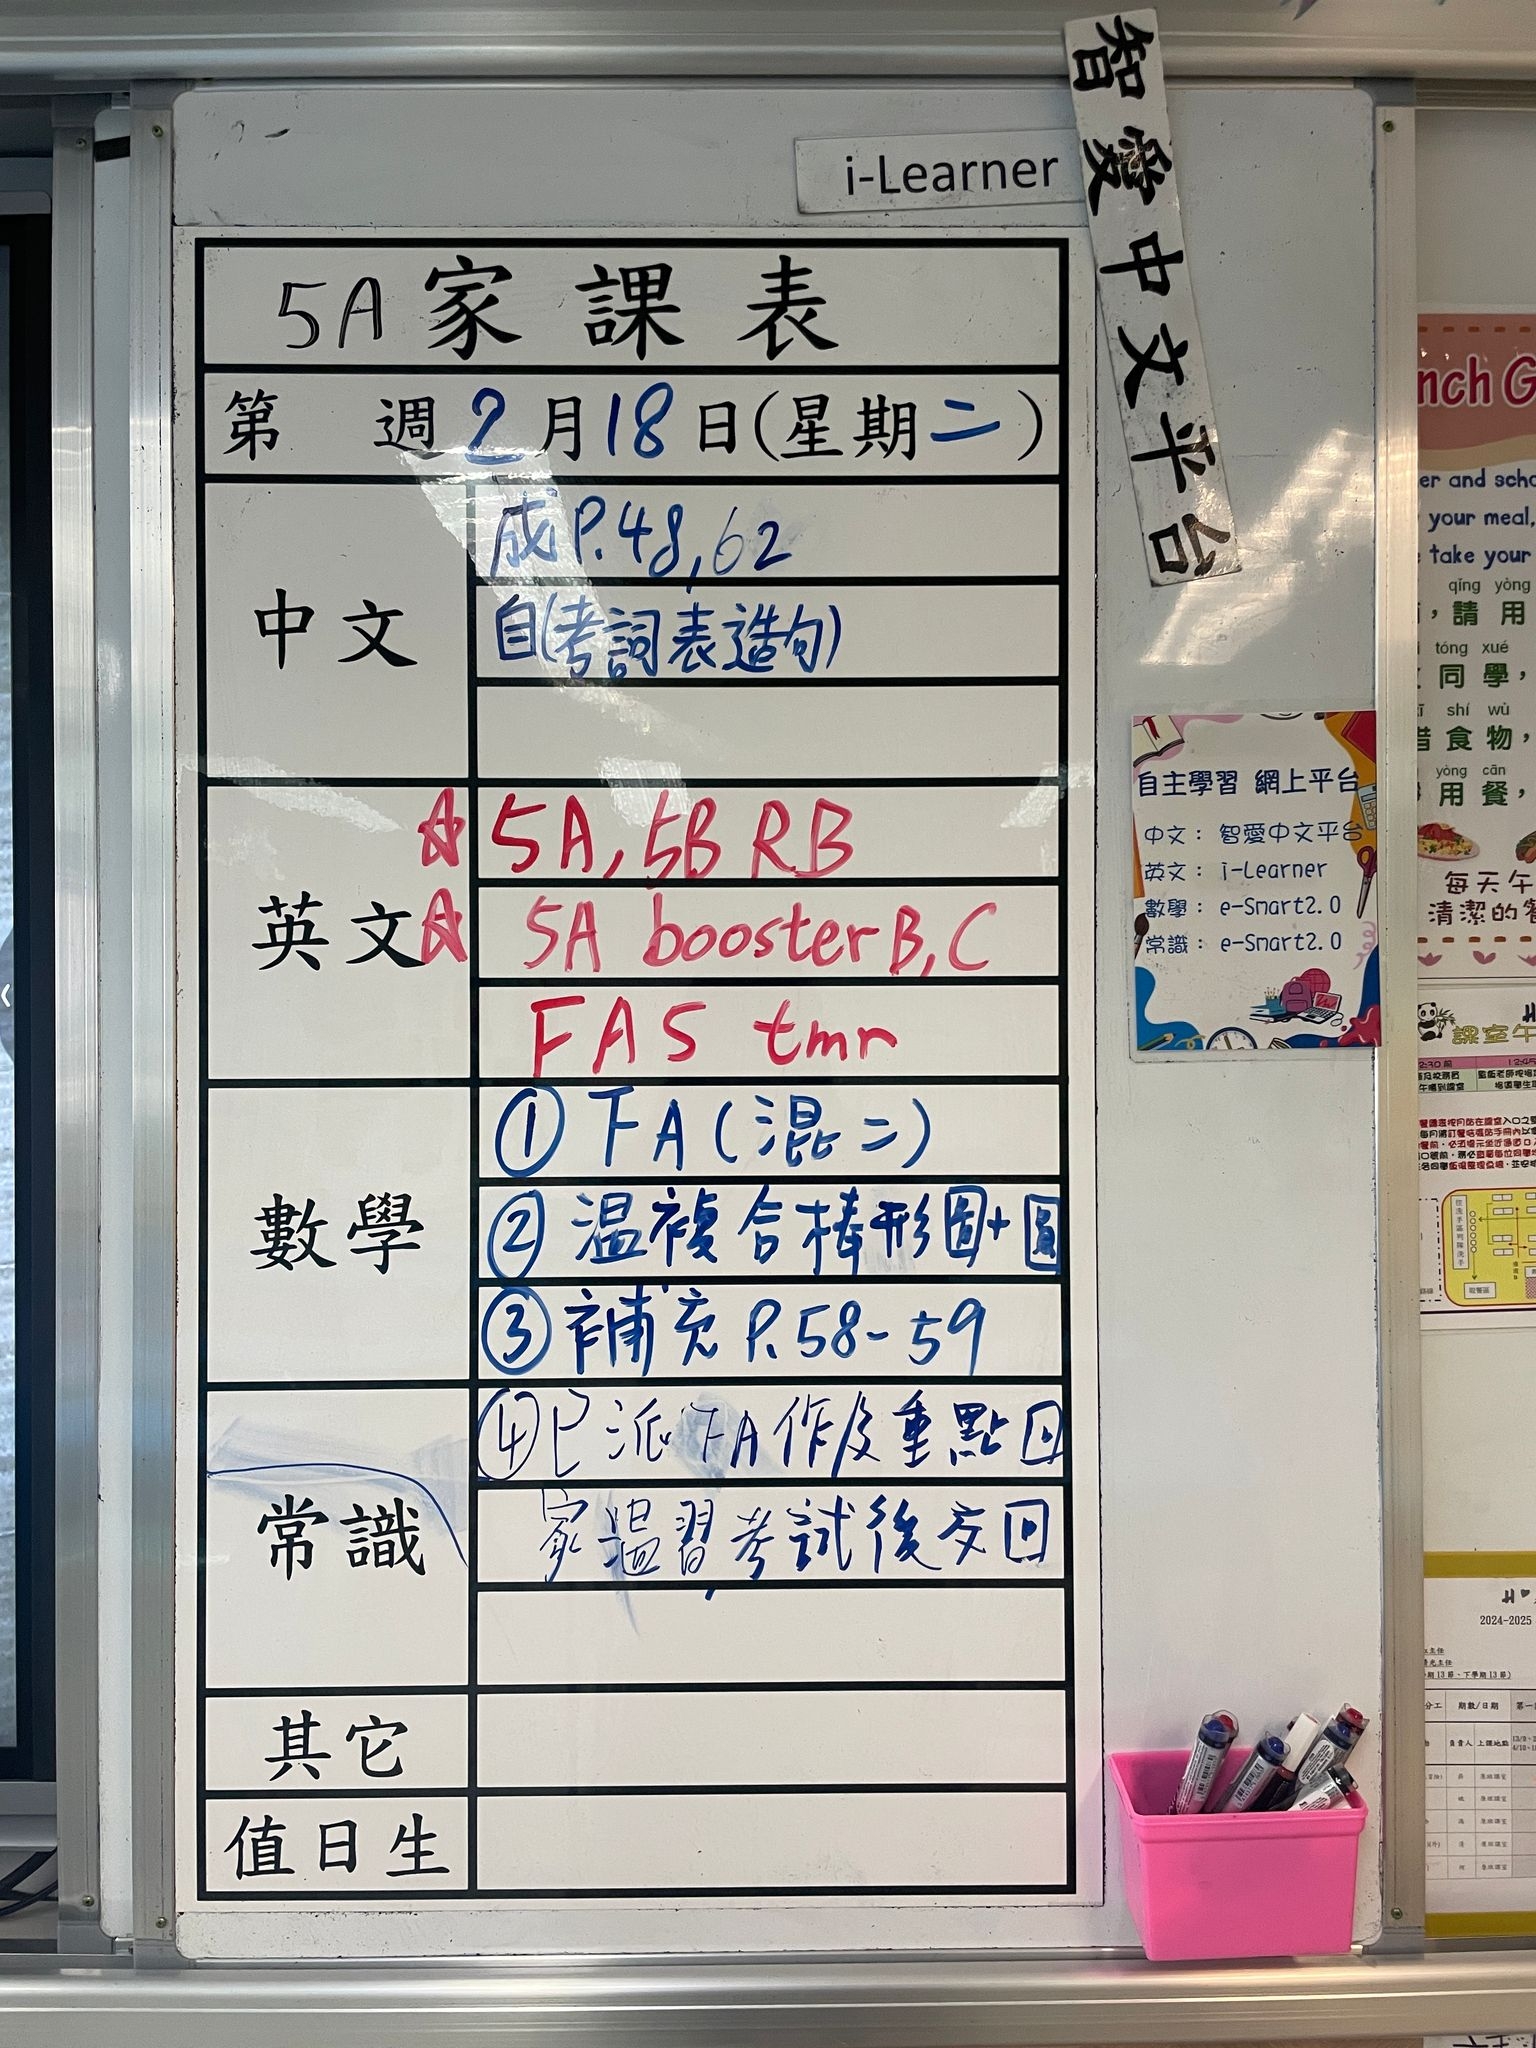 智愛中文平台
i-Learner
5A家課表
第 週2月18日(星期二)
中文
成P.48,62
自(考詞表造句)
英文
☆5A,5B RB
☆5A booster B,C
FA5 tmr
數學
①FA(混二)
②温複合棒形圖+圓
③補充P.58-59
④已派FA作及重點回
家温習考試後交回
常識
其它
值日生
自主學習 網上平台
中文： 智愛中文平台
英文： i-Learner
數學： e-Smart2.0
常識： e-Smart2.0
nch G
er and scho
your meal,
take your
qǐng yòng
，請用
tóng xué
同學，
shí wù
惜食物，
yòng cān
用餐，
每天午
清潔的餐
課室午
2:30前
12:45
2024-2025
期數/日期
第一
負責人
上課地點